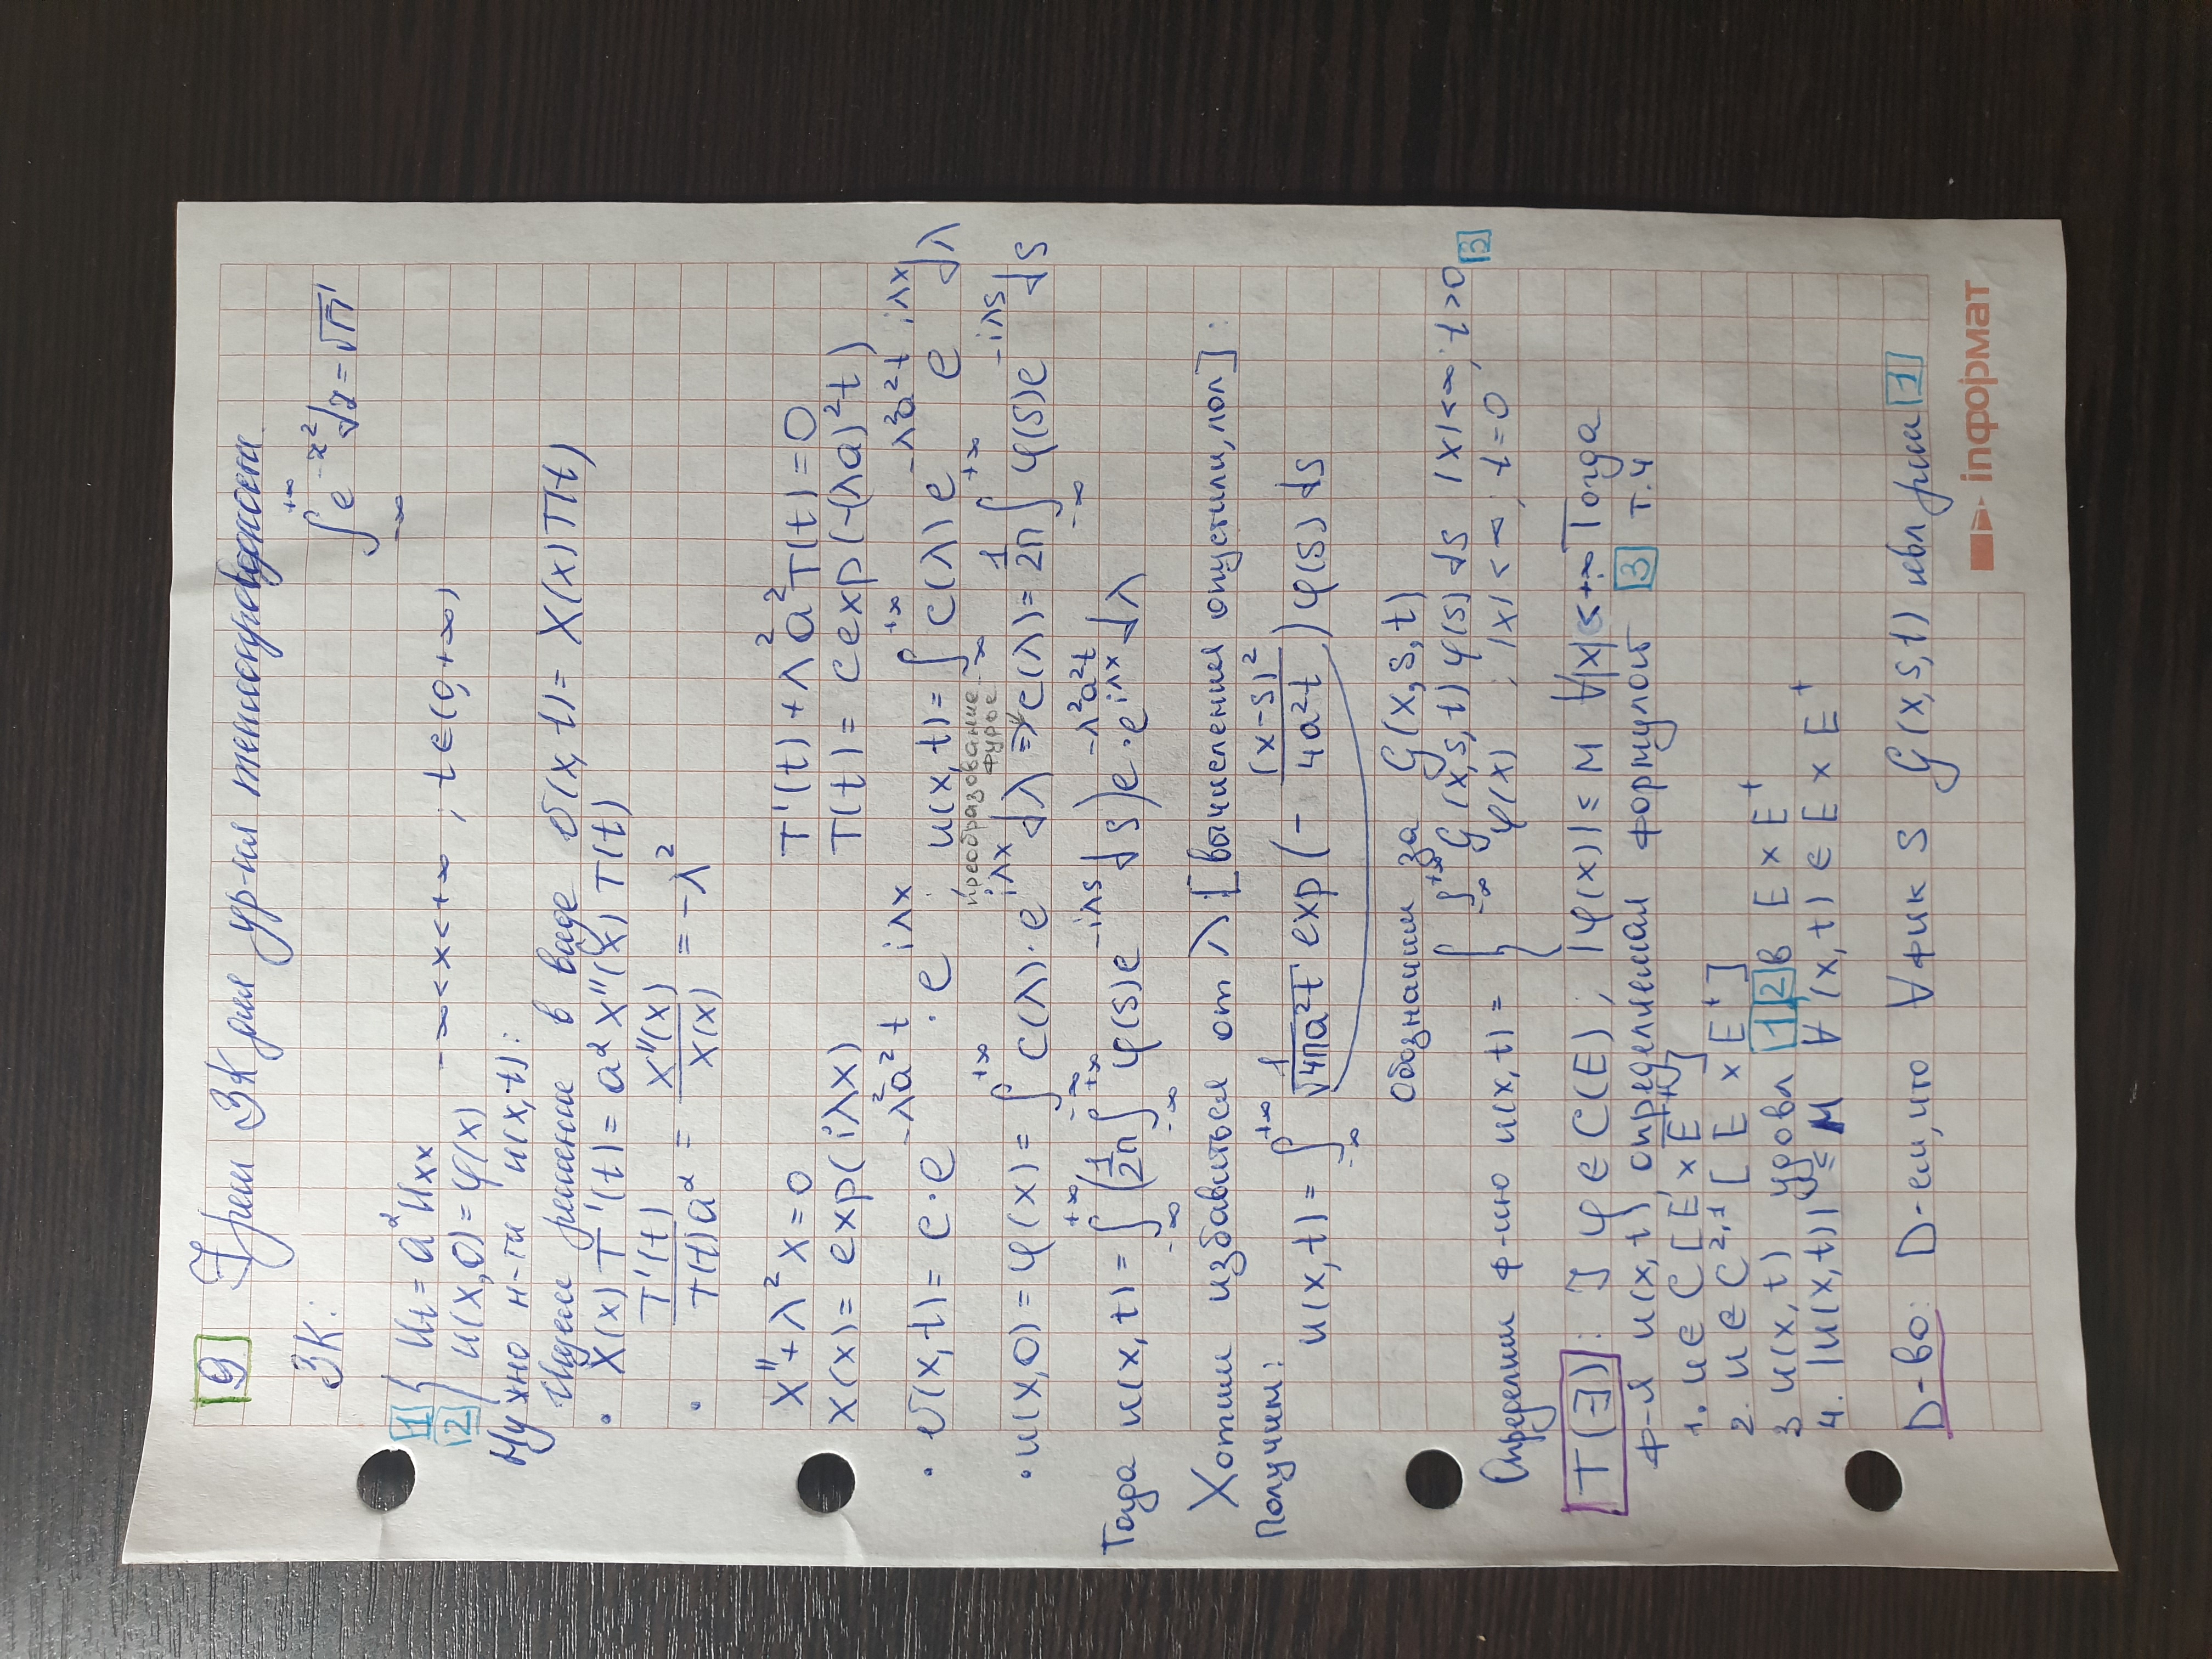 9 ∃ реш ЗК для ур-ия теплопроводности
ЗК: ∫_{-∞}^{+∞} e^{-z²} dz = √π
1 { u_t = a² u_xx
2 u(x,0) = φ(x) -∞ < x < +∞ ; t ∈ (0,+∞)
Нужно н-ти u(x,t):
Ищем решение в виде υ(x,t) = X(x)T(t)
• X(x)T'(t) = a² X''(x)T(t)
• T'(t)/T(t)a² = X''(x)/X(x) = -λ²
X'' + λ² X = 0 T'(t) + λ²a²T(t) = 0
X(x) = exp(iλx) T(t) = c exp(-(λa)²t)
• υ(x,t) = c·e^{-λ²a²t}·e^{iλx} u(x,t) = ∫_{-∞}^{+∞} c(λ)e^{-λ²a²t} e^{iλx} dλ
преобразование Фурье
• u(x,0) = φ(x) = ∫_{-∞}^{+∞} c(λ)·e^{iλx} dλ => c(λ) = 1/2π ∫_{-∞}^{+∞} φ(s)e^{-iλs} ds
Тогда u(x,t) = ∫_{-∞}^{+∞} (1/2π ∫_{-∞}^{+∞} φ(s)e^{-iλs} ds)e^{-λ²a²t}·e^{iλx} dλ
Хотим избавиться от λ [вычисления опустили, пол]:
Получим: u(x,t) = ∫_{-∞}^{+∞} 1/√(4πa²t) exp(- (x-s)²/4a²t) φ(s) ds
Обозначим за G(x,s,t)
Определим ф-ию u(x,t) = { ∫_{-∞}^{+∞} G(x,s,t)φ(s)ds |x|<∞; t>0 3
φ(x) ; |x|<∞; t=0
T(∃): ] φ ∈ C(E), |φ(x)| ≤ M ∀|x|≤+∞ Тогда
ф-я u(x,t) определяемая формулой 3 т.ч
1. u ∈ C[E × E̅⁺]
2. u ∈ C^{2,1}[E × E⁺]
3 u(x,t) удовл 1 2 в E × E⁺
4. |u(x,t)| ≤ M ∀(x,t) ∈ E × E⁺
D-во: D-ем, что ∀ фик s G(x,s,t) явл реш 1
inформат